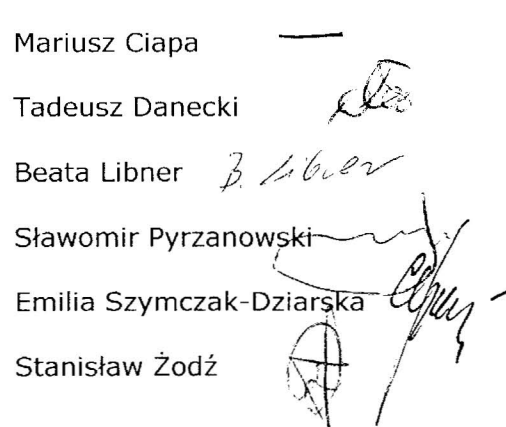 Mariusz Ciapa —
Tadeusz Danecki
Beata Libner B. Libner
Sławomir Pyrzanowski
Emilia Szymczak-Dziarska
Stanisław Żodź